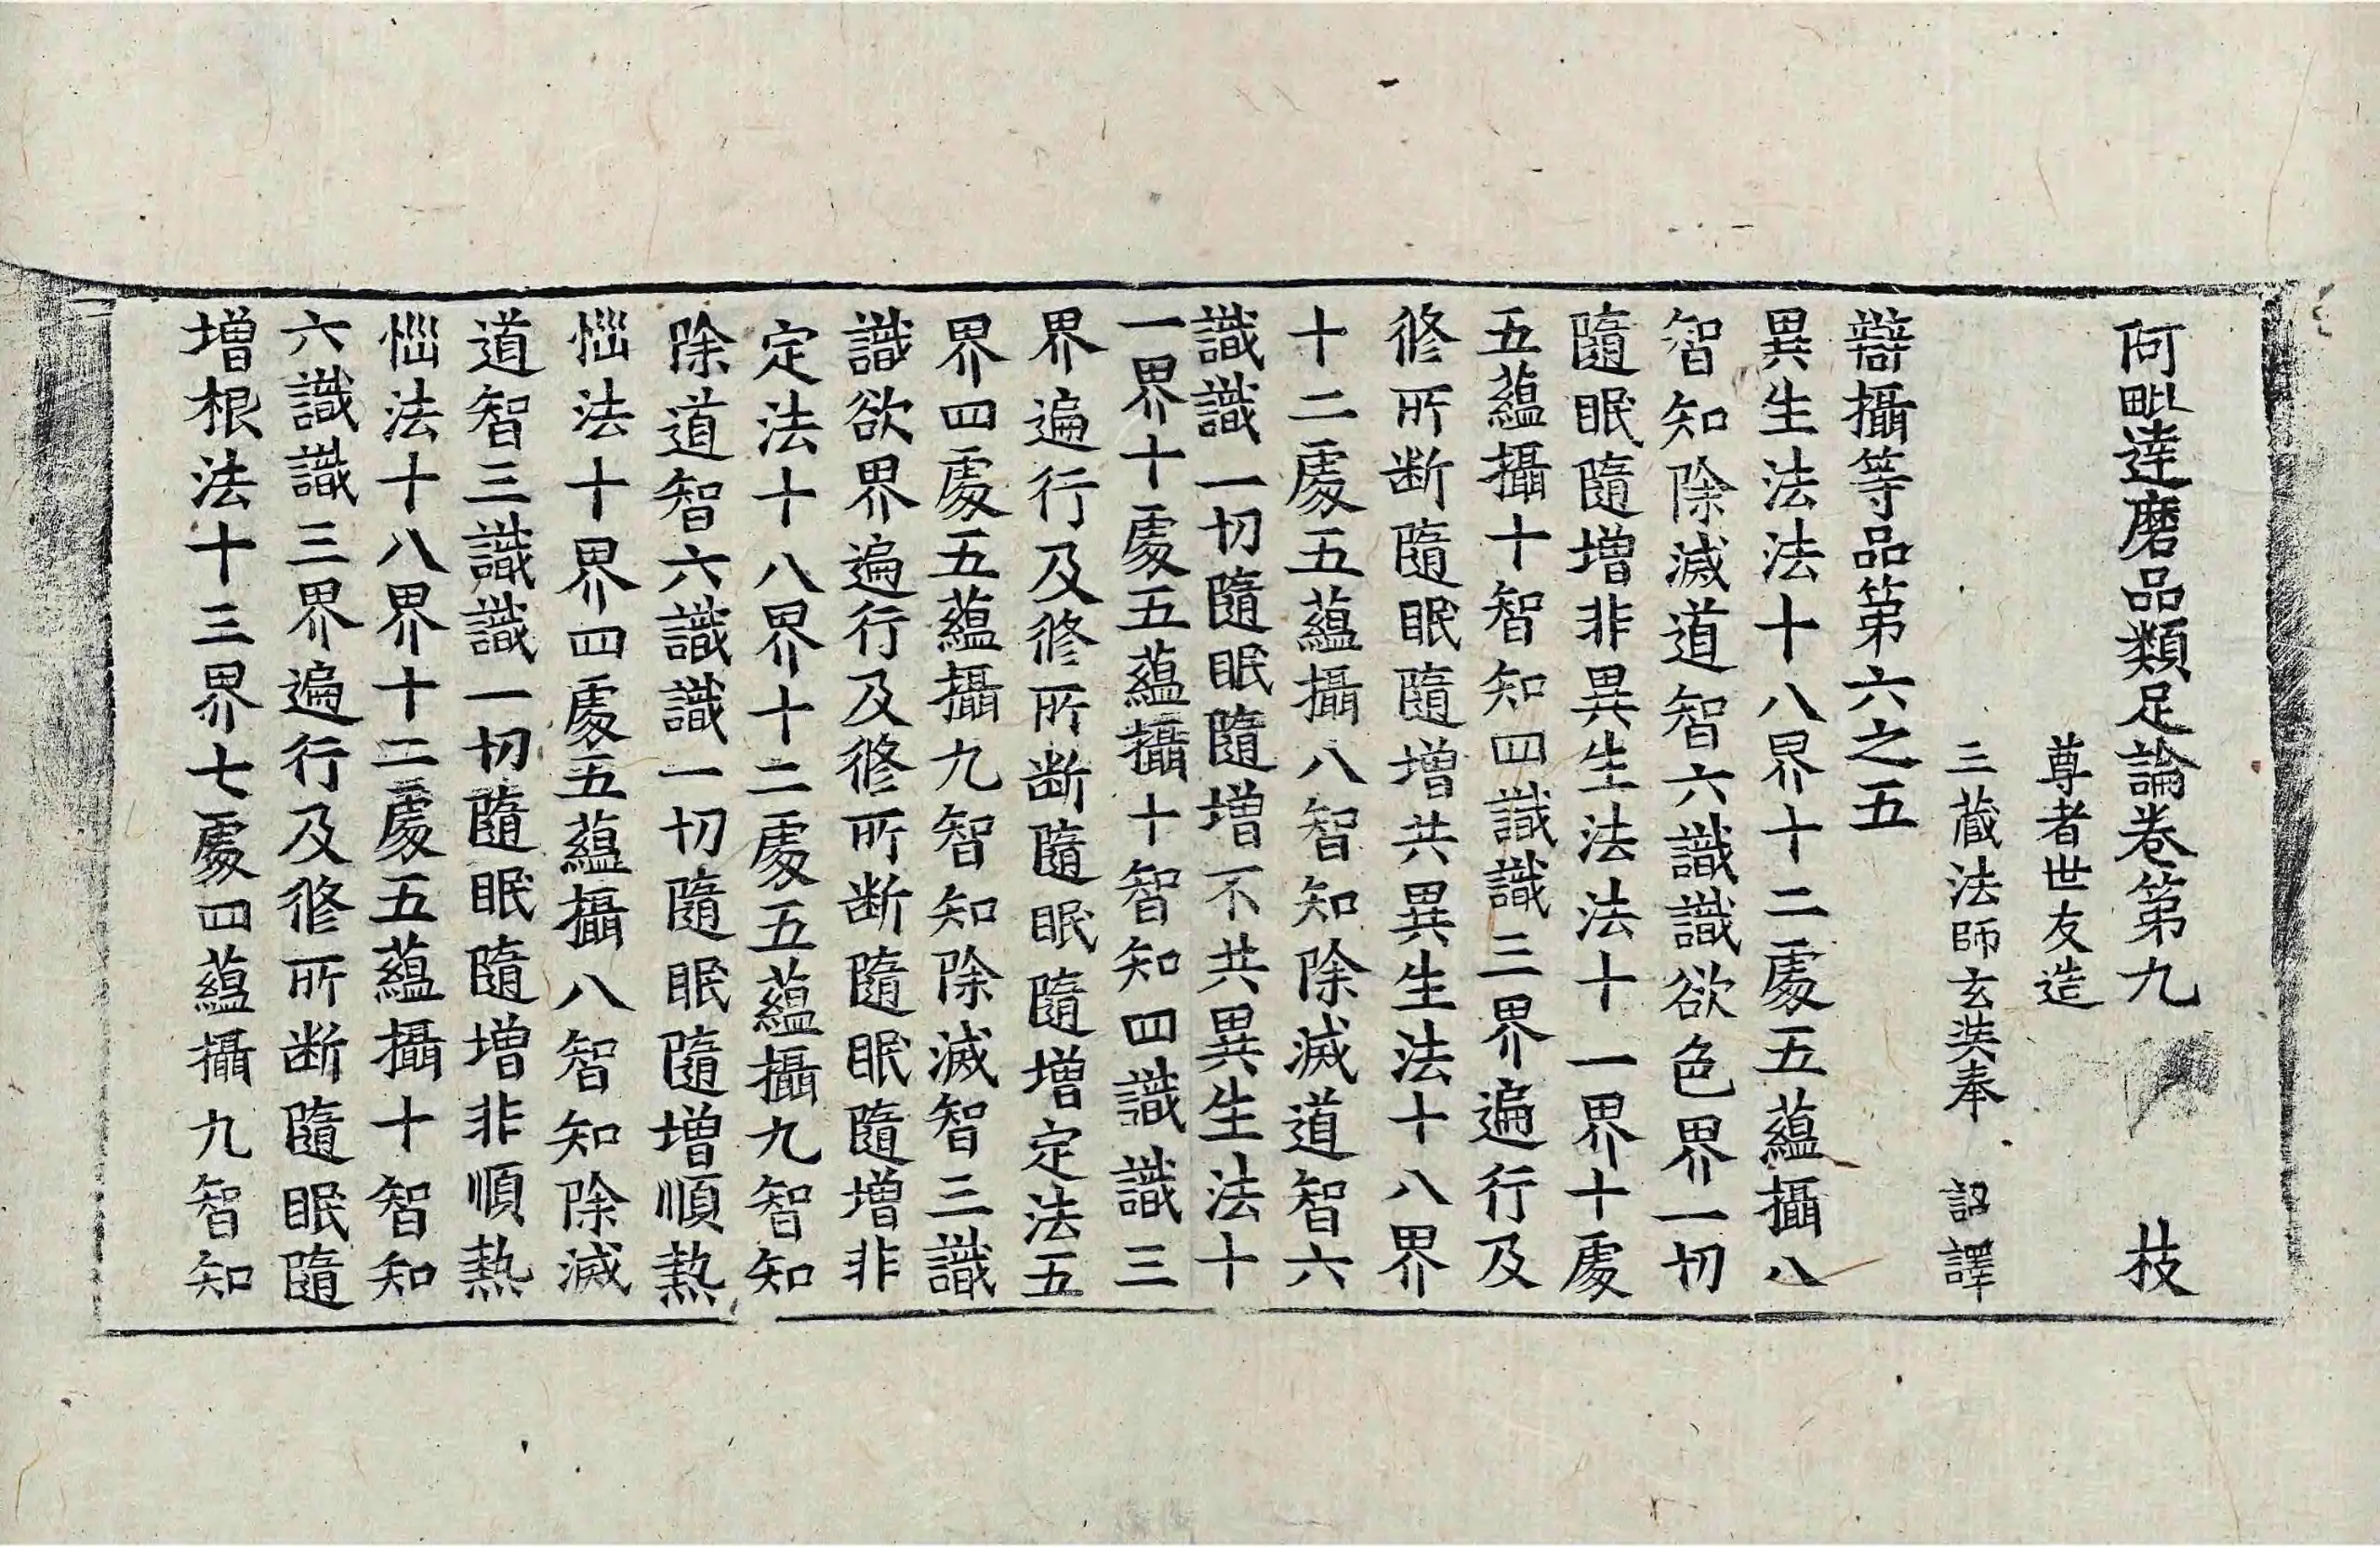 阿毗達磨品類足論卷第九 技
尊者世友造
三藏法師玄奘奉 詔譯
辯攝等品第六之五
異生法法十八界十二處五蘊攝八
智知除滅道智六識識欲色界一切
隨眠隨增非異生法法十一界十處
五蘊攝十智知四識識三界遍行及
修所断隨眠隨增共異生法十八界
十二處五蘊攝八智知除滅道智六
識識一切隨眠隨增不共異生法十
一界十處五蘊攝十智知四識識三
界遍行及修所断隨眠隨增定法五
界四處五蘊攝九智知除滅智三識
識欲界遍行及修所断隨眠隨增非
定法十八界十二處五蘊攝九智知
除道智六識識一切隨眠隨增順熱
惱法十界四處五蘊攝八智知除滅
道智三識識一切隨眠隨增非順熱
惱法十八界十二處五蘊攝十智知
六識識三界遍行及修所断隨眠隨
增根法十三界七處四蘊攝九智知